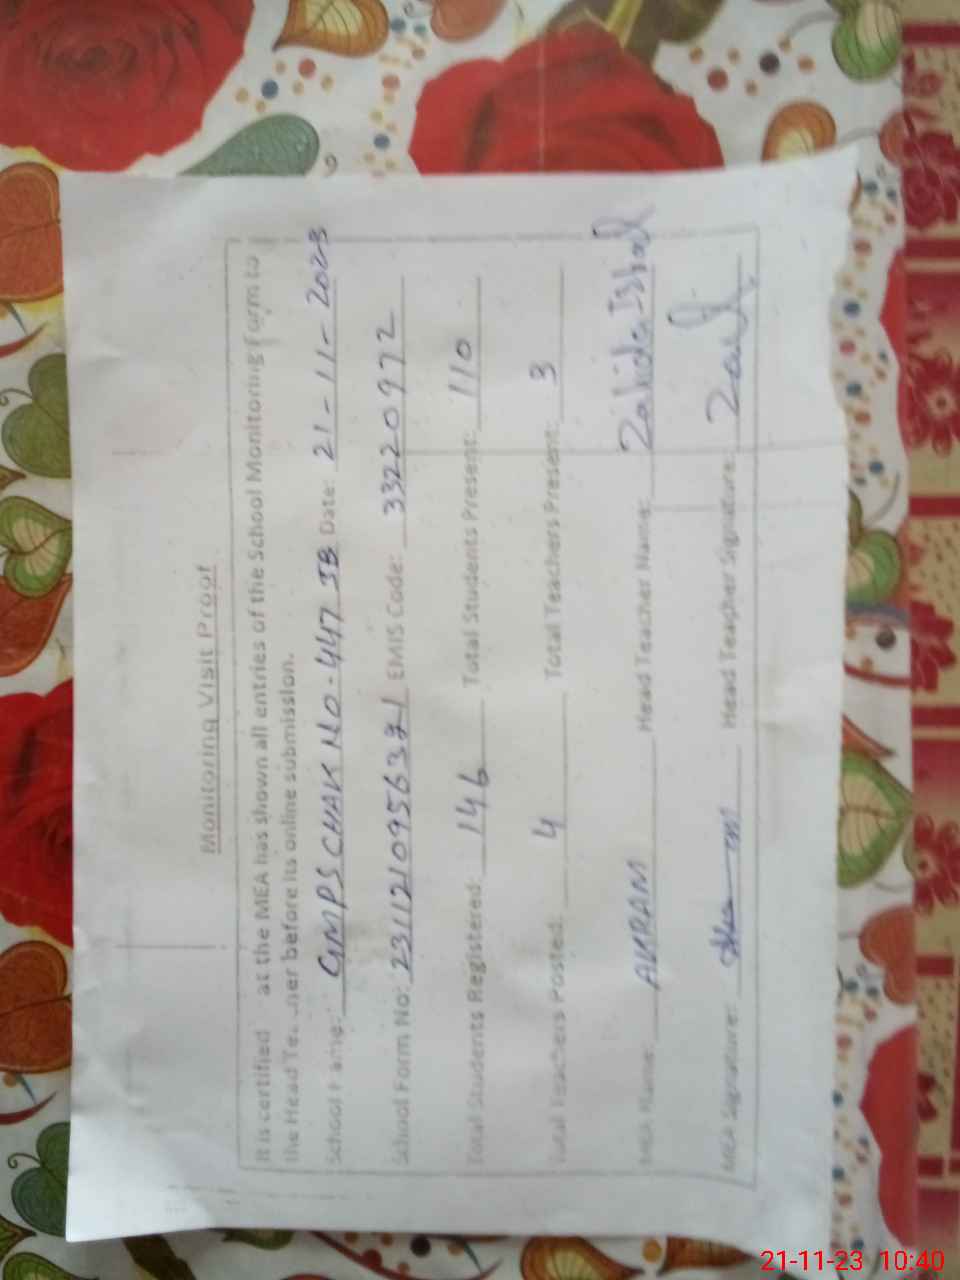 Monitoring Visit Proof
It is certified at the MEA has shown all entries of the School Monitoring Form to
the Head Te. .ner before its online submission.
School ame: GMPS CHAK NO. 447 JB Date: 21-11-2023
School Form No: EMIS Code: 33220972
Total Students Registered: 146 Total Students Present: 110
Total Teachers Posted: 4 Total Teachers Present: 3
MEA Name: AKRAM Head Teacher Name: Zahida
MEA Signature: Head Teacher Signature:
21-11-23 10:40